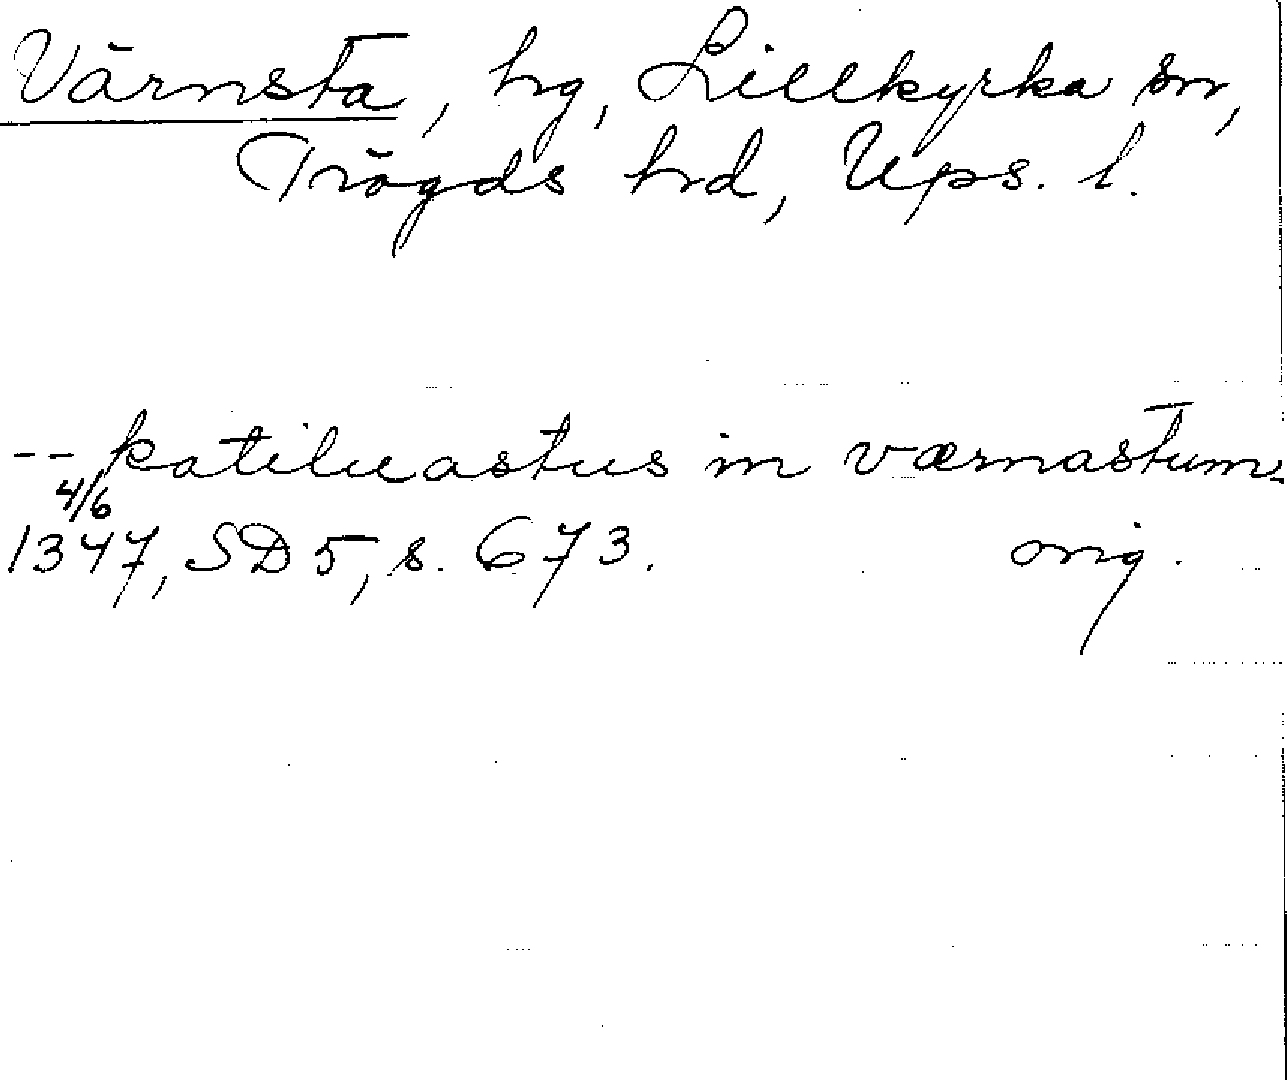 Värnsta, hg, Lillkyrka sn,
Trögds hrd, Ups. l.
-- katiluastus in værnastum.
4/6
1347, SD 5, s. 673. orig.